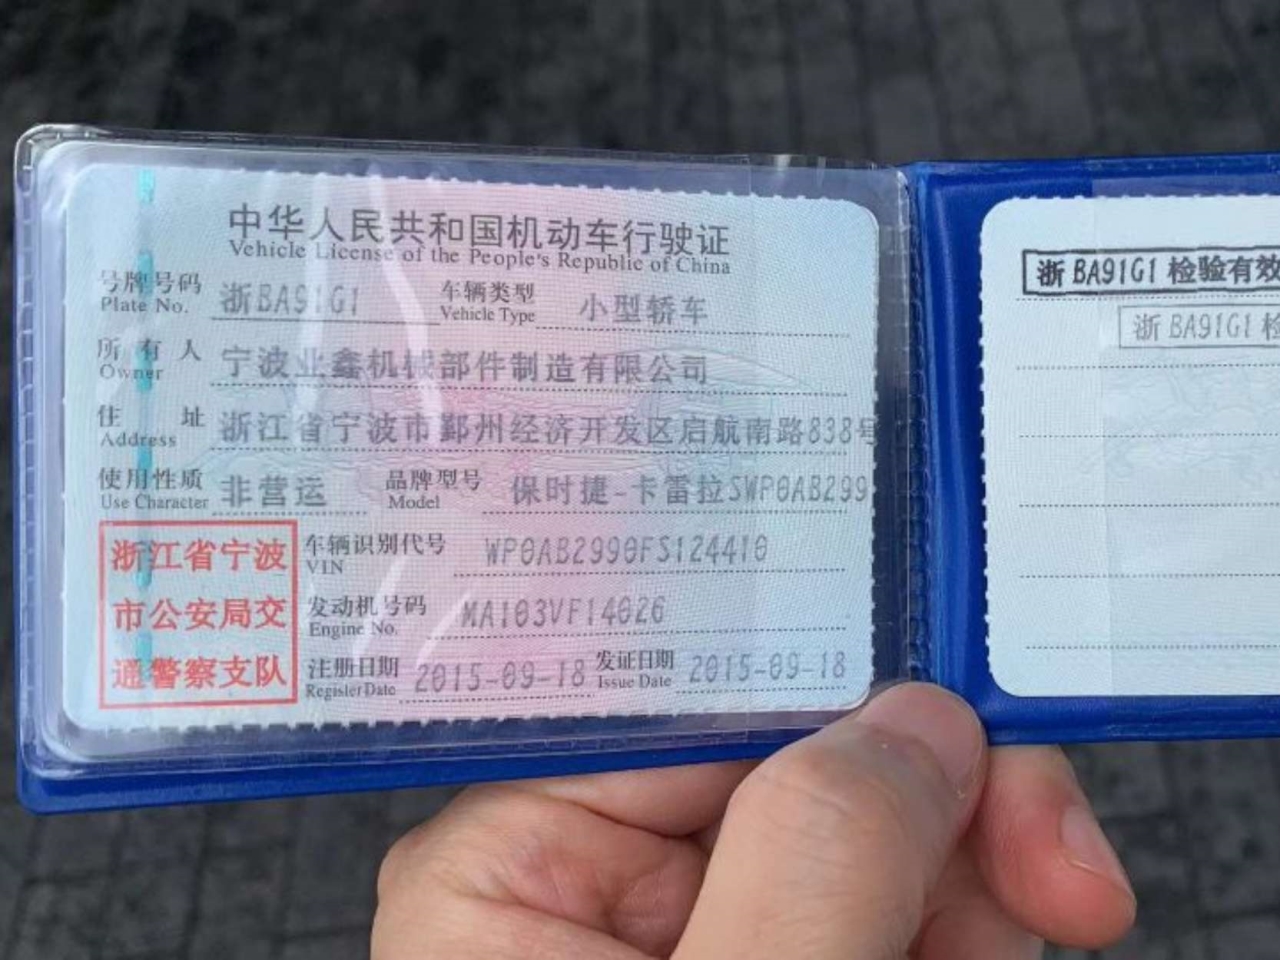 中华人民共和国机动车行驶证
Vehicle License of the People's Republic of China
号牌号码 浙BA91G1 车辆类型 小型轿车
Plate No. Vehicle Type
所有人 宁波业鑫机械部件制造有限公司
Owner
住址 浙江省宁波市鄞州经济开发区启航南路838号
Address
使用性质 非营运 品牌型号 保时捷-卡雷拉SWP0AB299
Use Character Model
浙江省宁波
市公安局交
通警察支队
车辆识别代号 WP0AB2990FS124410
VIN
发动机号码 MA103VF14026
Engine No.
注册日期 2015-09-18 发证日期 2015-09-18
Register Date Issue Date
浙BA91G1 检验有效
浙BA91G1 检